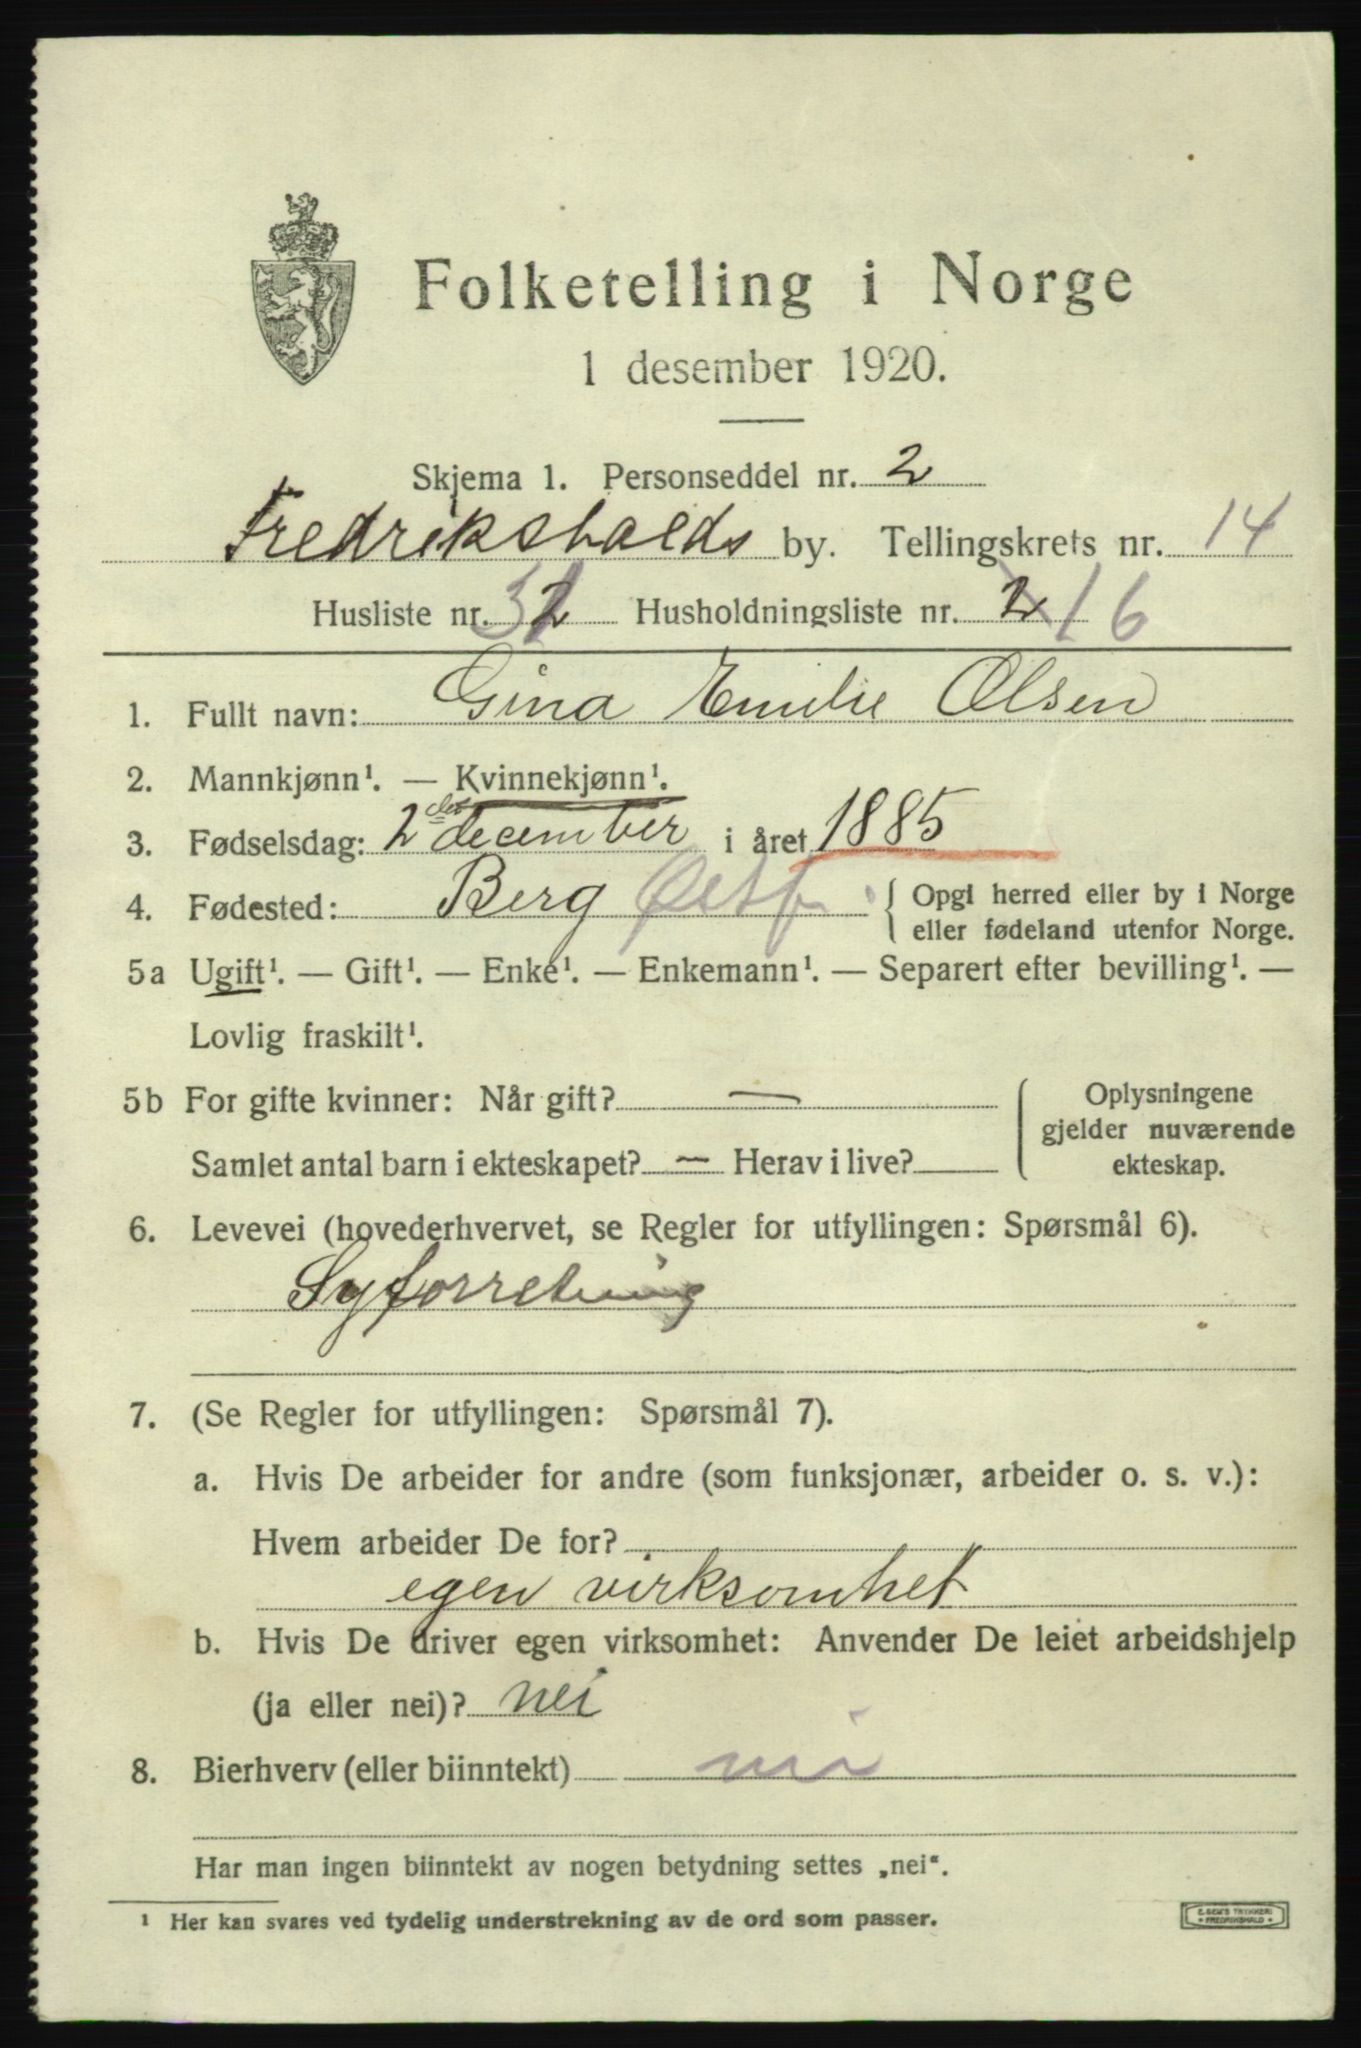 Folketelling i Norge
1 desember 1920.
Skjema 1. Personseddel nr. 2
Fredrikshalds by. Tellingskrets nr. 14
Husliste nr. 2 Husholdningsliste nr. 2 16
1. Fullt navn: Gina Emilie Olsen
2. Mannkjønn¹. — Kvinnekjønn¹.
3. Fødselsdag: 2 december i året 1885
4. Fødested: Berg Østf { Opgi herred eller by i Norge
eller fødeland utenfor Norge.
5a Ugift¹. — Gift¹. — Enke¹. — Enkemann¹. — Separert efter bevilling¹. —
Lovlig fraskilt¹.
5b For gifte kvinner: Når gift? — Oplysningene
gjelder nuværende
Samlet antal barn i ekteskapet? — Herav i live? ekteskap.
6. Levevei (hovederhvervet, se Regler for utfyllingen: Spørsmål 6).
Syforretning
7. (Se Regler for utfyllingen: Spørsmål 7).
a. Hvis De arbeider for andre (som funksjonær, arbeider o. s. v.):
Hvem arbeider De for?
egen virksomhet
b. Hvis De driver egen virksomhet: Anvender De leiet arbeidshjelp
(ja eller nei)? nei
8. Bierhverv (eller biinntekt) nei
Har man ingen biinntekt av nogen betydning settes „nei“.
¹ Her kan svares ved tydelig understrekning av de ord som passer.
E. SEM'S TRYKKERI
FREDRIKSHALD